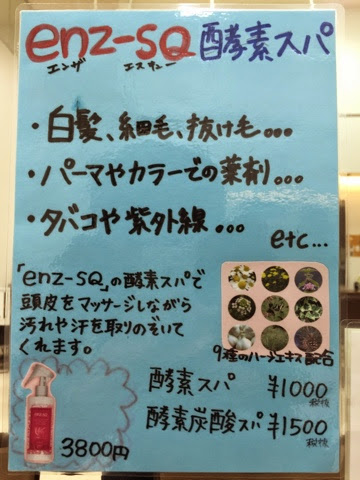 enz-SQ 酵素スパ
エンザ エスキュー
・白髪、細毛、抜け毛...
・パーマやカラーでの薬剤...
・タバコや紫外線...
etc...
「enz-SQ」の酵素スパで
頭皮をマッサージしながら
汚れや汗を取りのぞいて
くれます。
9種のハーブエキス配合
酵素スパ ¥1000
税抜
酵素炭酸スパ ¥1500
税抜
3800円